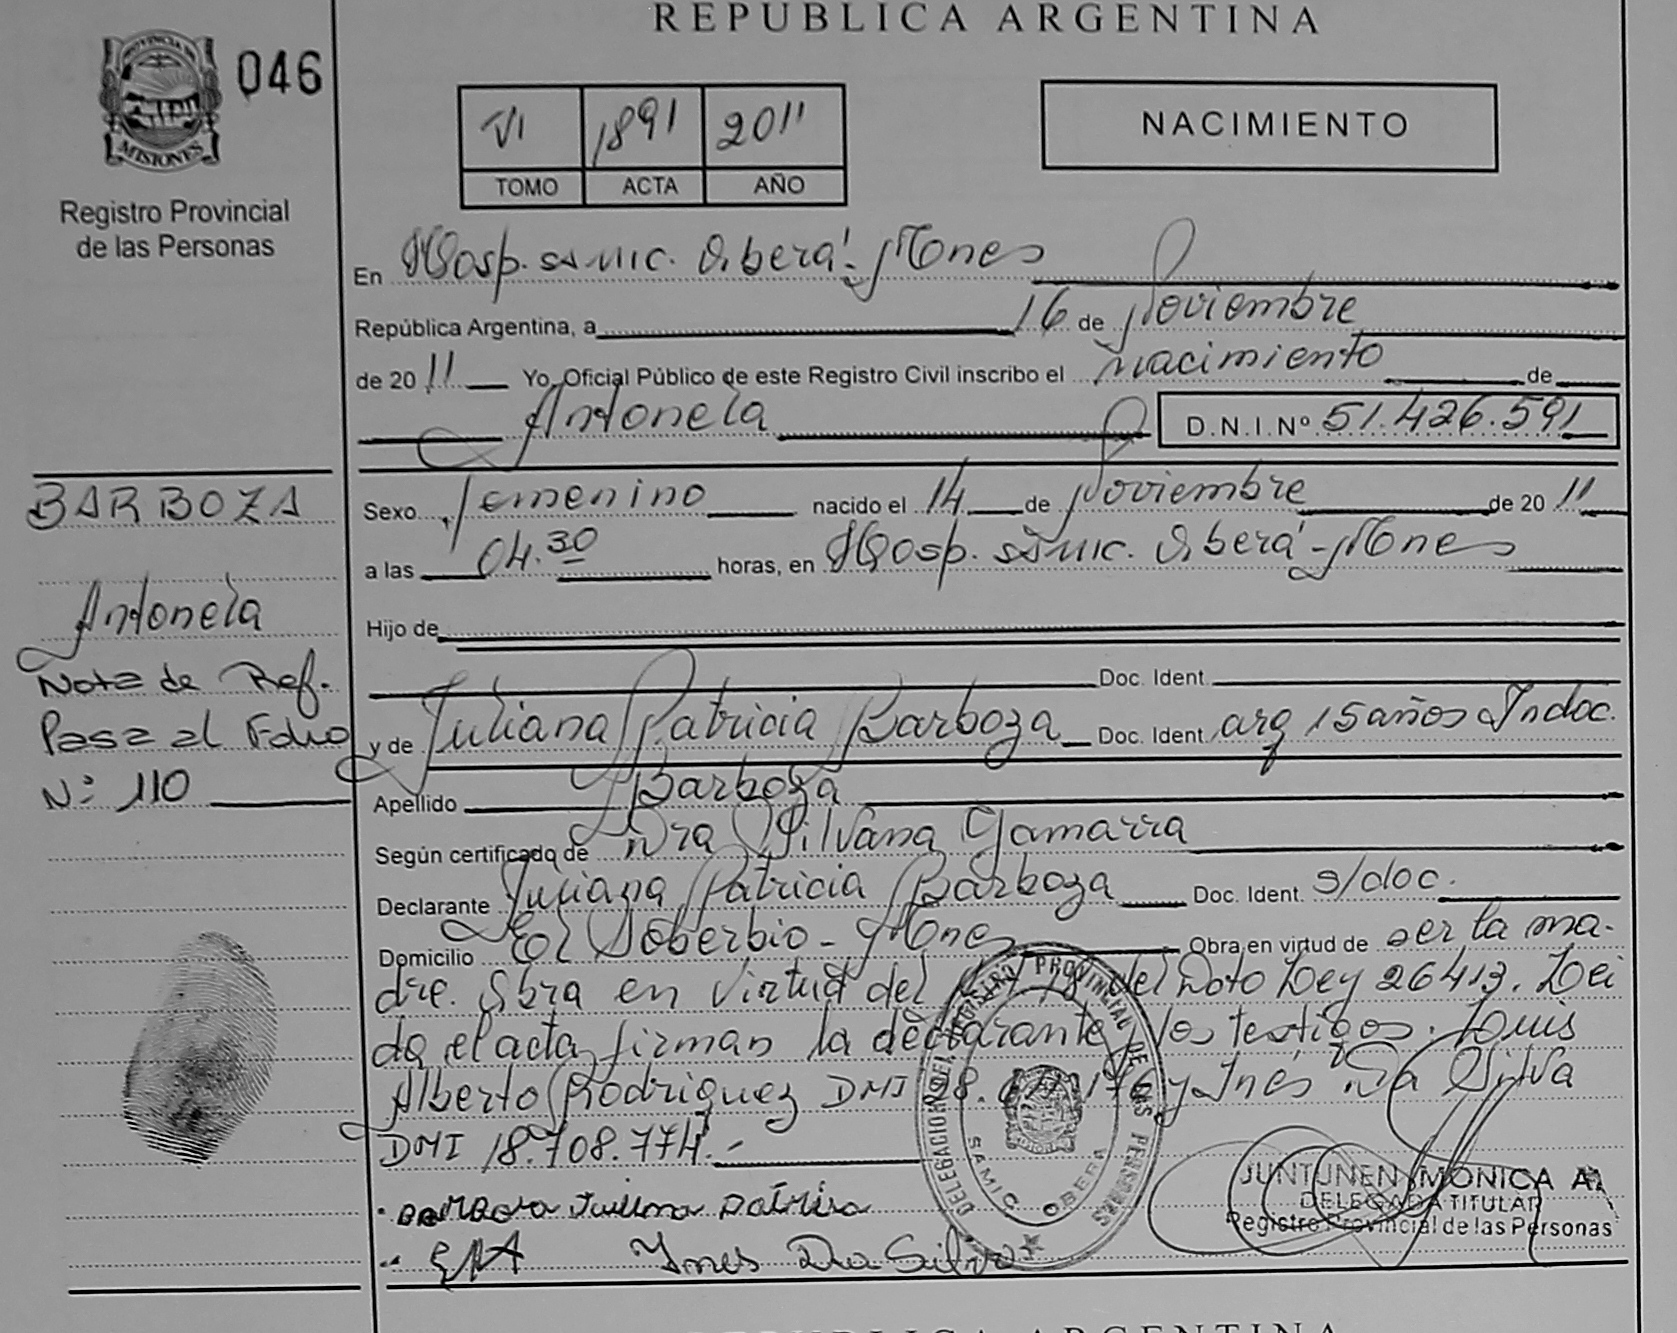 REPUBLICA ARGENTINA
PROVINCIA DE
MISIONES
046
Registro Provincial
de las Personas
VI 1891 2011
TOMO ACTA AÑO
NACIMIENTO
En Hosp. SAMIC. Oberá - Mones
República Argentina, a 16 de Noviembre
de 2011 Yo, Oficial Público de este Registro Civil inscribo el nacimiento de
Antonela D.N.I.Nº 51.426.591
BARBOZA
Antonela
Nota de Ref.
Pasa al Folio
Nº 110
Sexo femenino nacido el 14 de Noviembre de 2011
a las 04.30 horas, en Hosp. SAMIC. Oberá - Mones
Hijo de
Doc. Ident.
y de Juliana Patricia Barboza Doc. Ident. arg 15 años Indoc.
Apellido Barboza
Según certificado de Dra Silvana Gamarra
Declarante Juliana Patricia Barboza Doc. Ident. s/doc.
Domicilio El Soberbio - Mones Obra en virtud de ser la ma-
dre. Obra en virtud del del Dcto Ley 26413. Lei
da el acta firman la declarante y los testigos. Luis
Alberto Rodriguez DNI 28. y Inés Da Silva
DNI 18.708.774.-
Barboza Juliana Patricia
Ines Da Silva
DELEGACION DEL REGISTRO PROVINCIAL DE LAS PERSONAS
SAMIC OBERA
JUNTUNEN MONICA A.
DELEGADA TITULAR
Registro Provincial de las Personas
REPUBLICA ARGENTINA